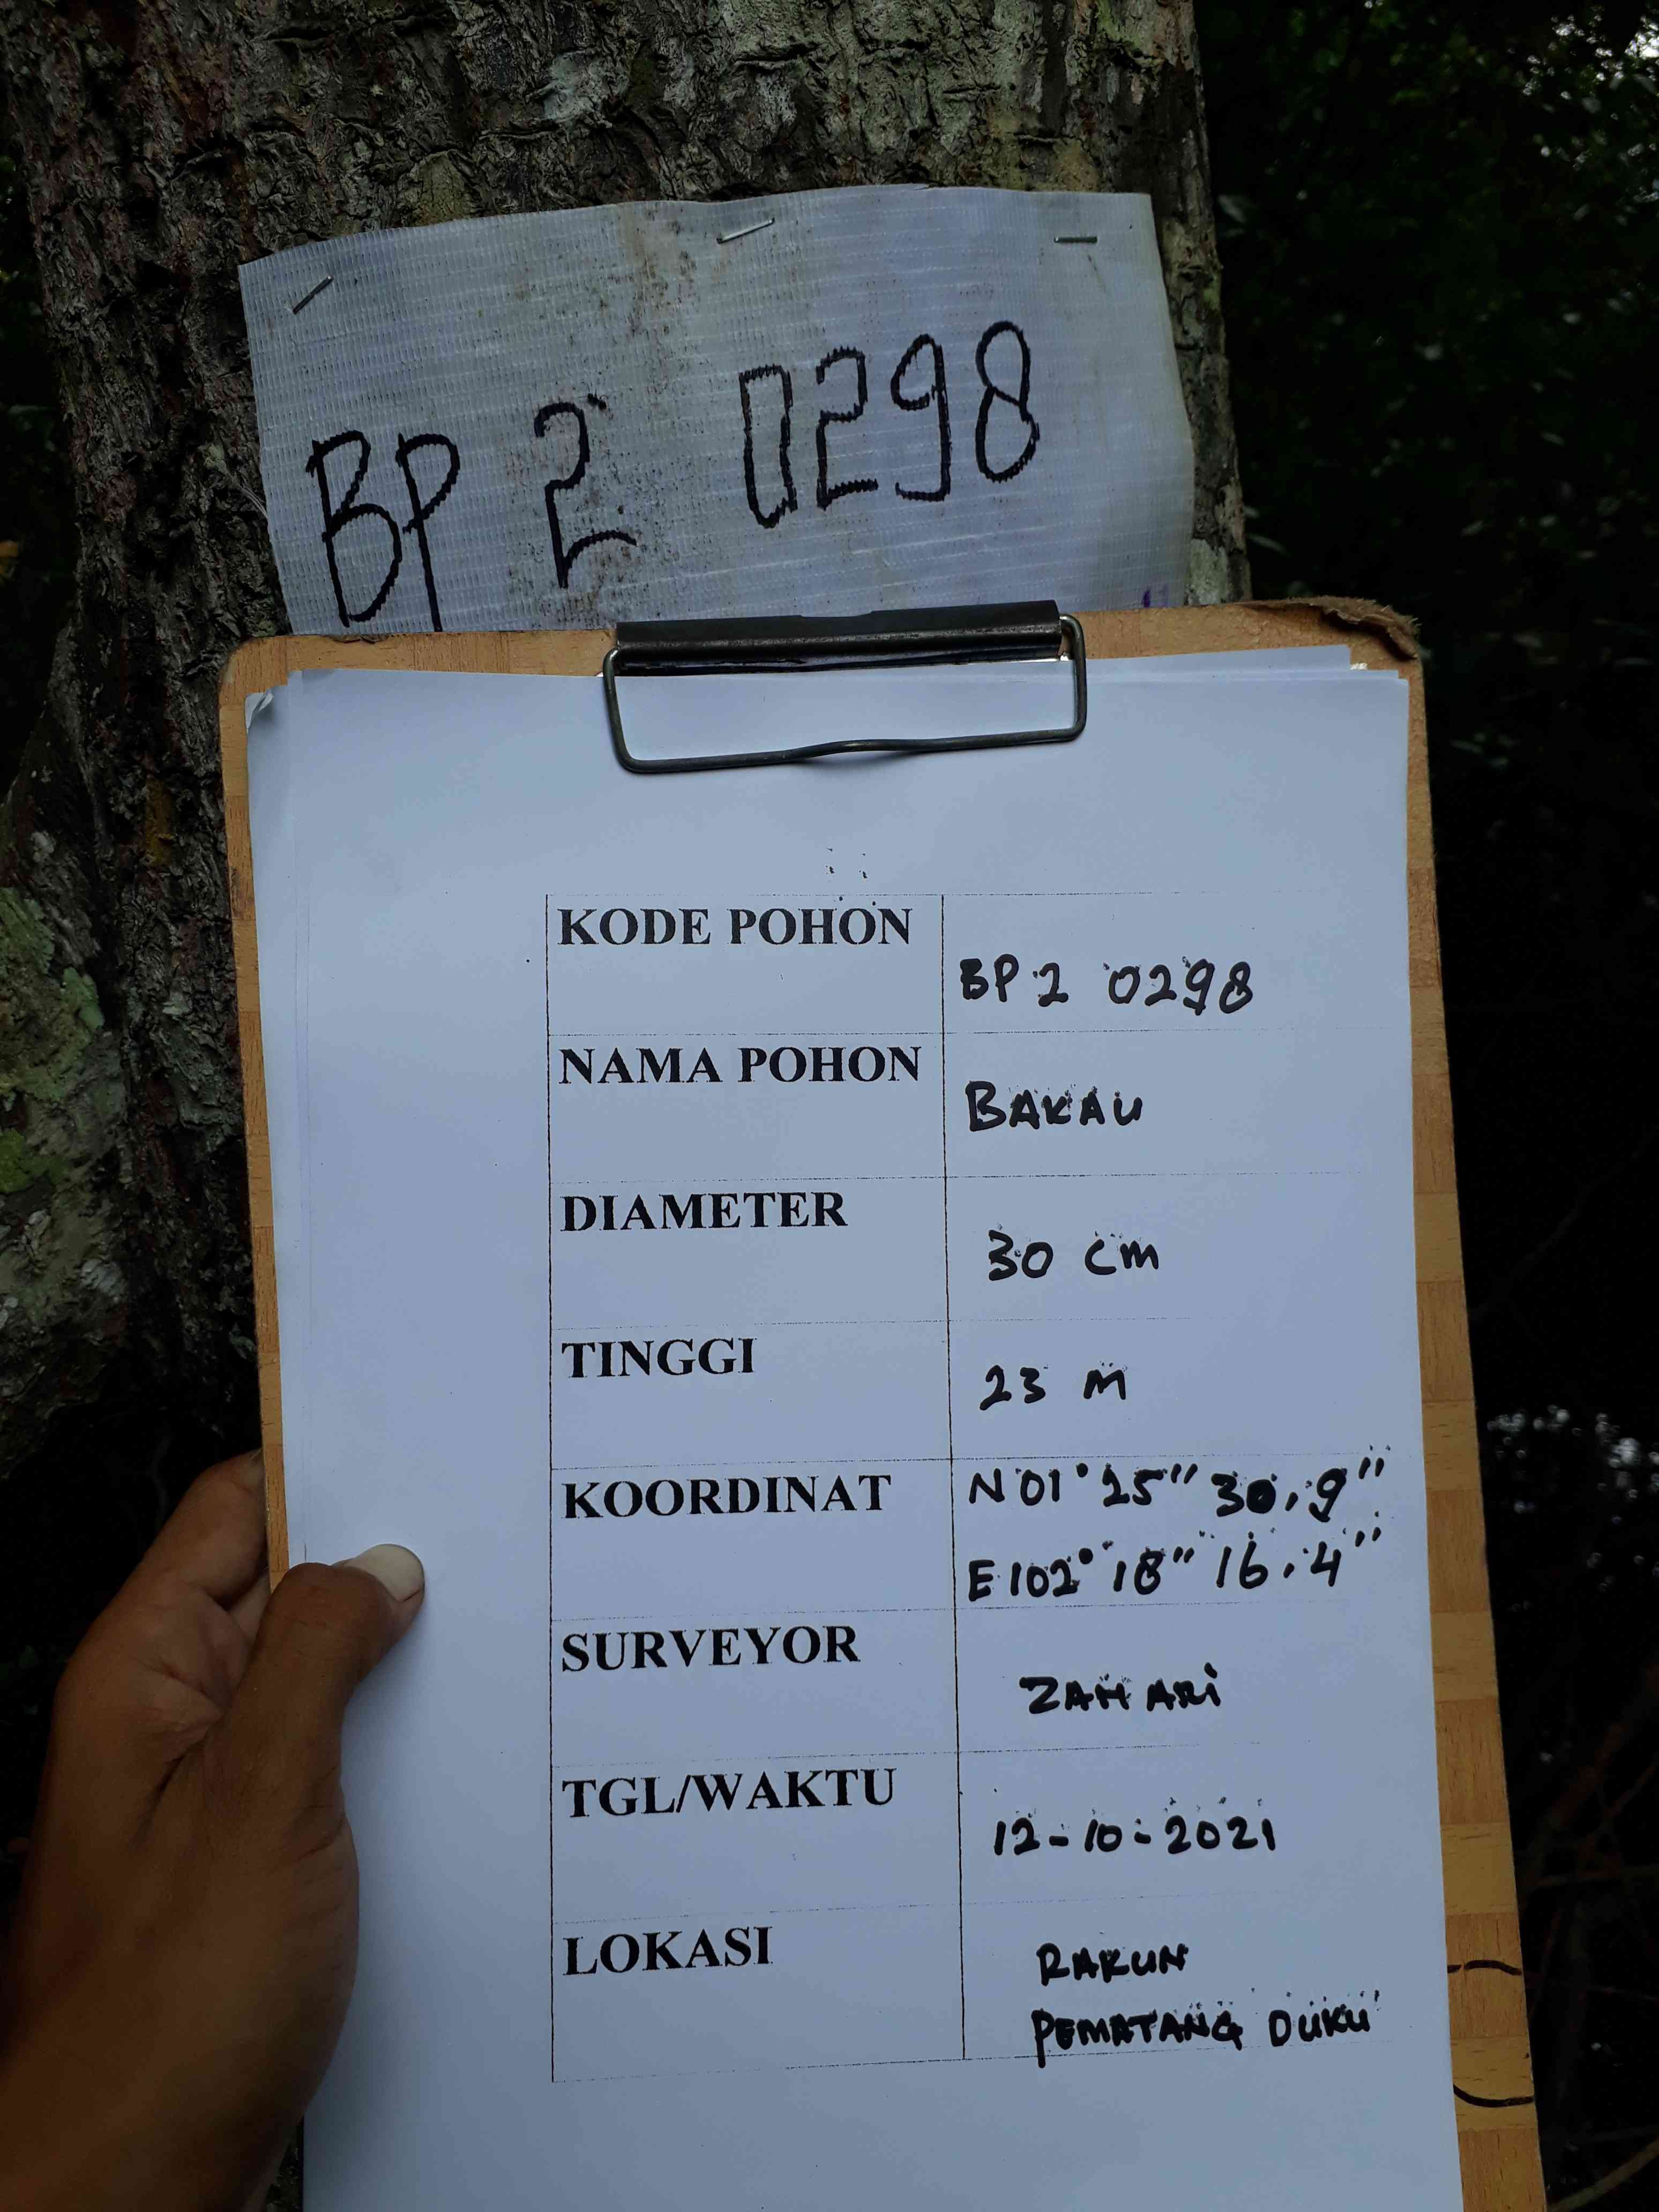 BP 2 0298
KODE POHON BP 2 0298
NAMA POHON BAKAU
DIAMETER 30 cm
TINGGI 23 M
KOORDINAT N 01° 25" 30,9"
E 102° 18" 16.4"
SURVEYOR ZAHARi
TGL/WAKTU 12-10-2021
LOKASI RAKUN
PEMATANG DUKU